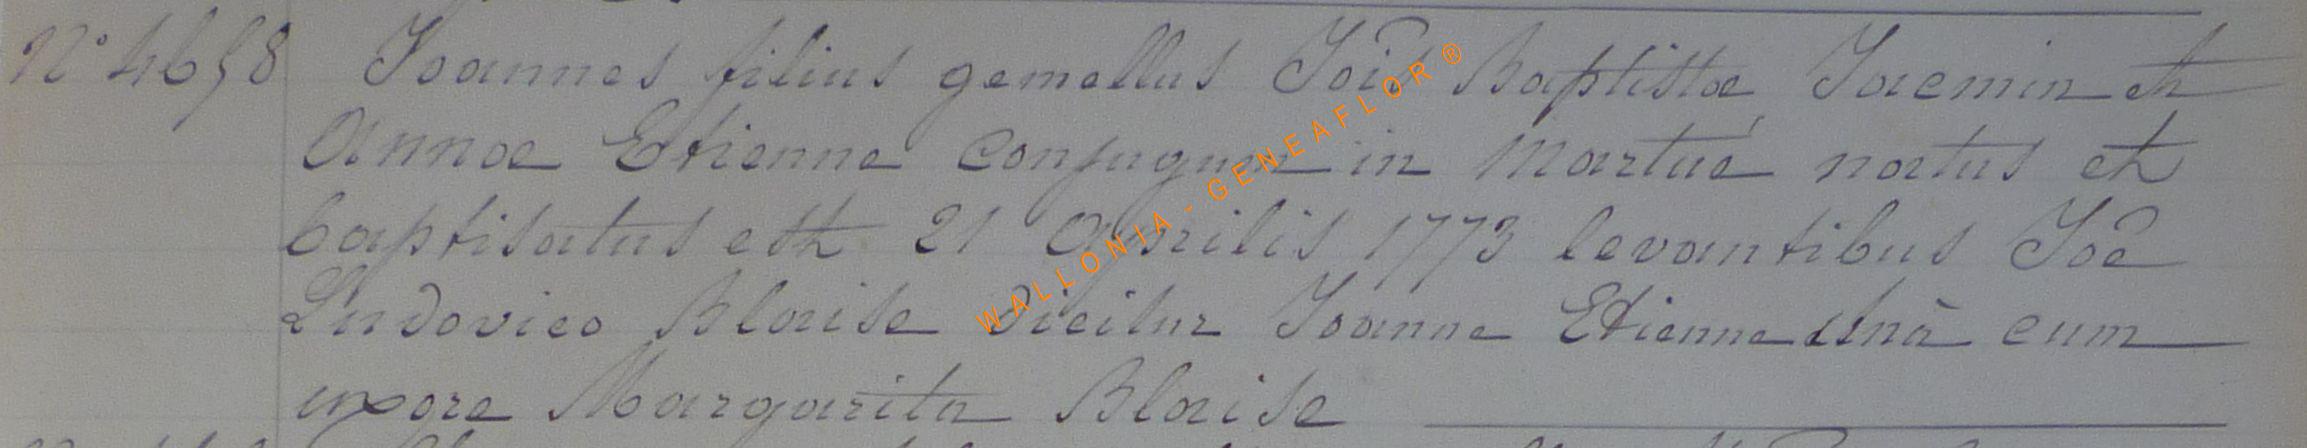 N° 4658 Joannes filius gemellus Jois Baptistæ Jacmin et
Annæ Etienne conjugum in Martué natus et
baptisatus est 21 Aprilis 1773 levantibus Joē
Ludovico Blaise dicitur Joanne Etienne unā cum
uxore Margarita Blaise
WALLONIA - GENEAFLOR ®